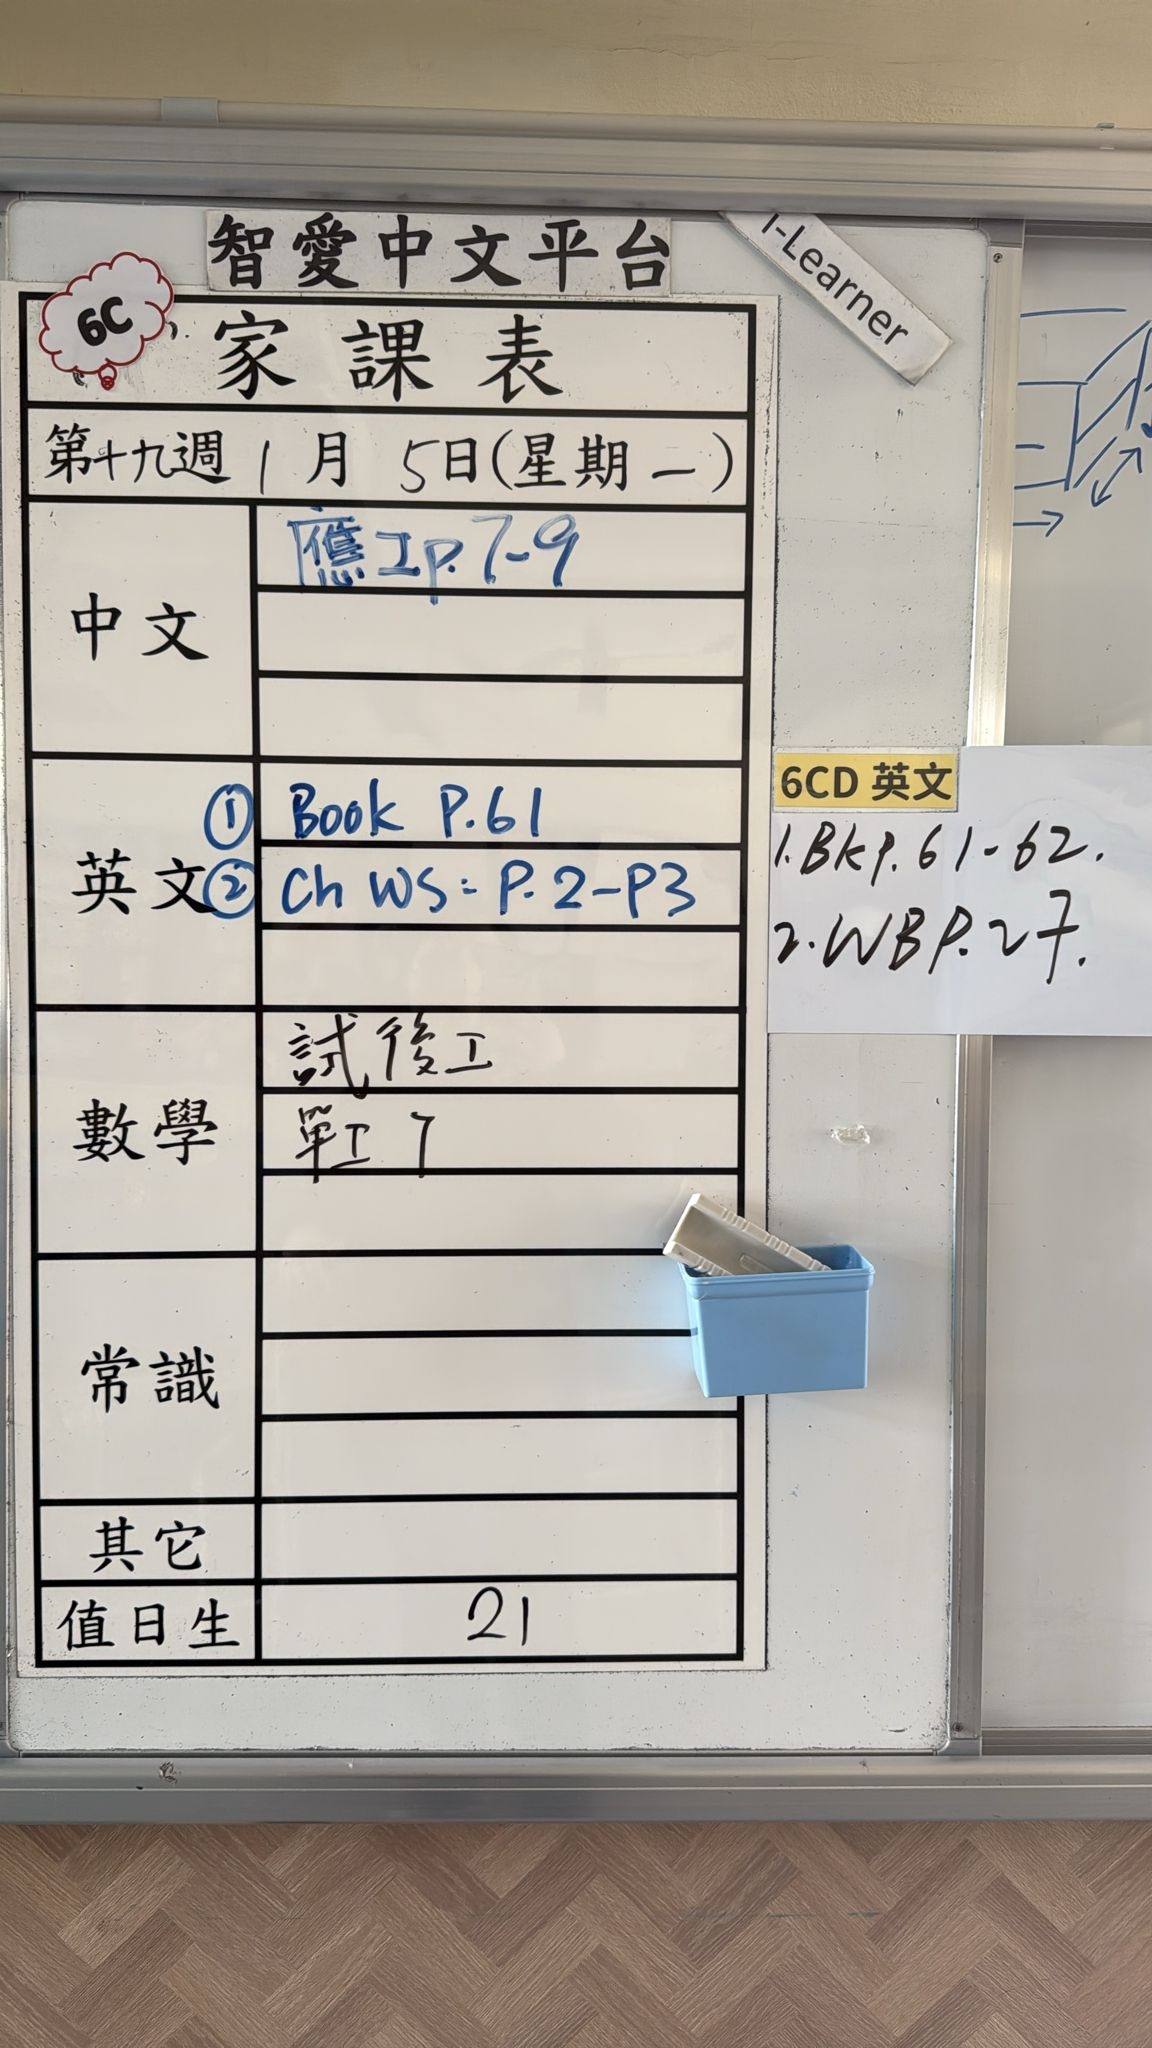 智愛中文平台
i-Learner
6C
家課表
第十九週 1月5日(星期一)
中文
應工p.7-9
英文
① Book P.61
② Ch WS: P.2-P3
6CD 英文
1.BK P.61-62.
2.WB P.27.
數學
試後工
單工 7
常識
其它
值日生
21